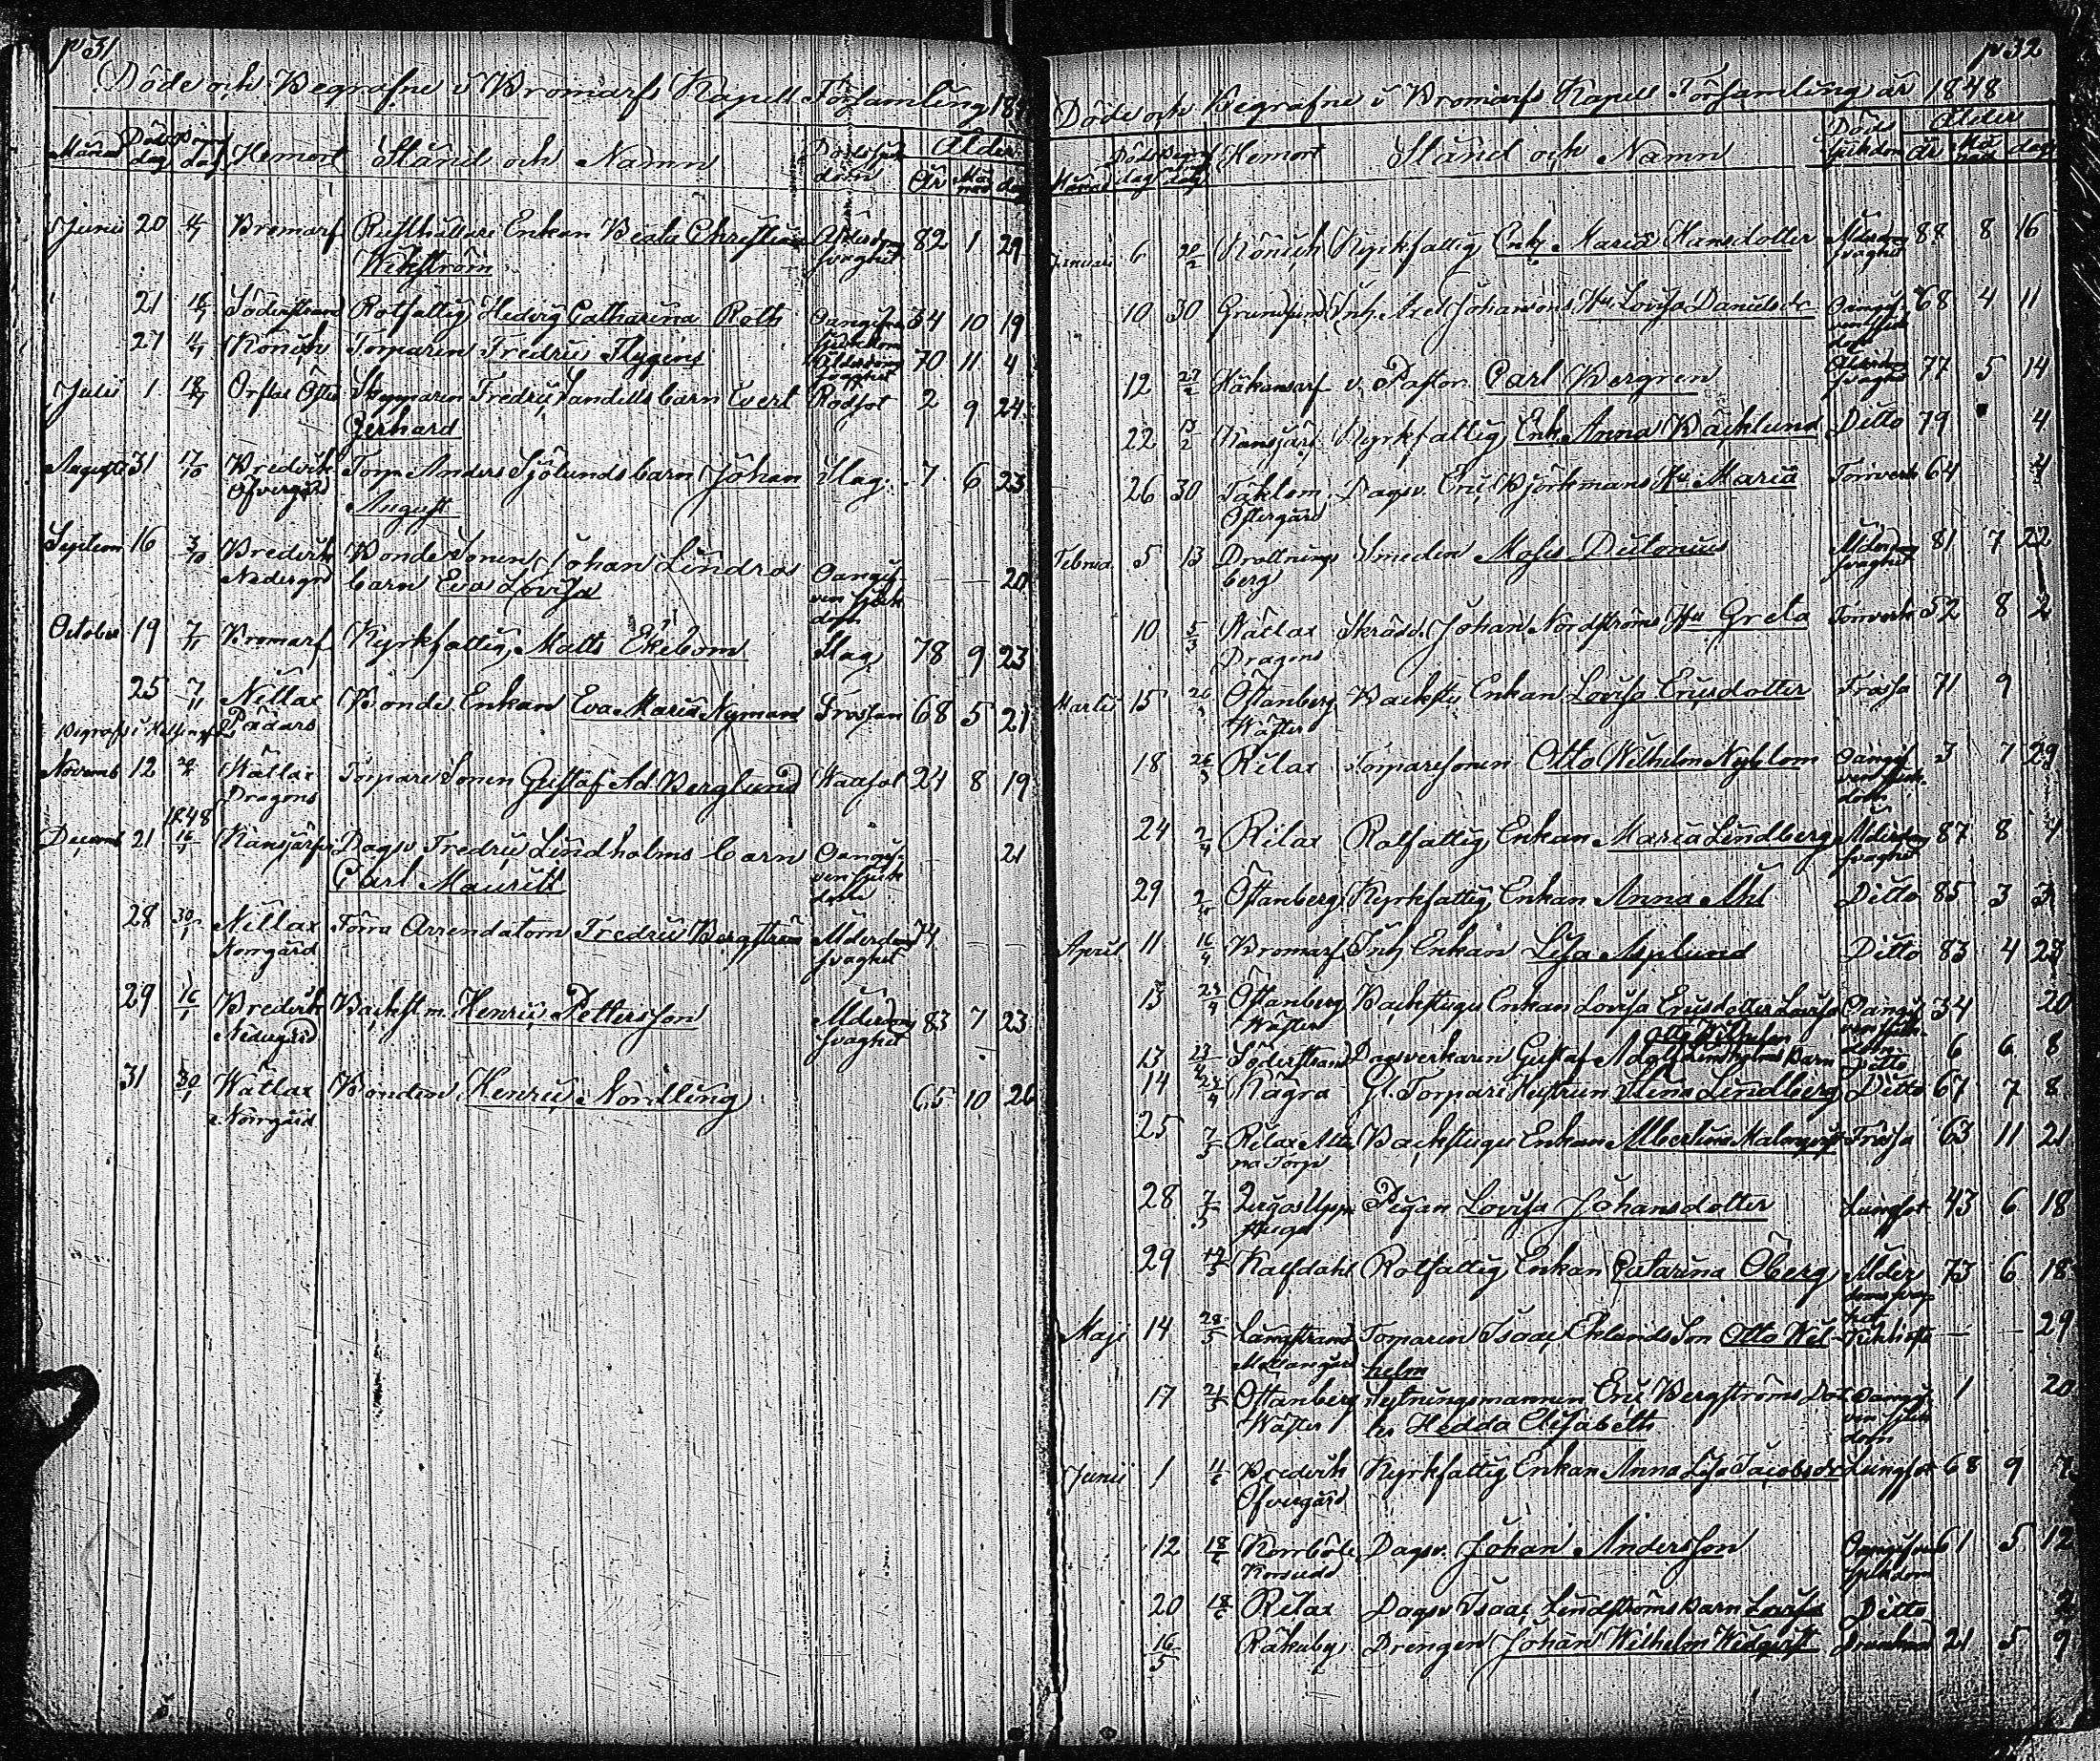 p 31
Döde och Begrafne i Bromarfs Kapell Församling 184
Månad Döds dag Begr dag Hemort Stånd och Namn Dödssjukdom Ålder
År Månad dag
Junii 20 Bromarf Rusthållare Enkan Beata Christina Ålderdoms 82 1 29
Wikström svaghet
21 18/7 Söderstrand Rotfattig Hedvig Catharina Roth Oangifven 34 10 19
sjukdom
27 Konich Torparen Fredric Flygeus Ålderdoms 70 11 4
svaghet
Julii 1 18/7 Skepparen Fredric Sandells barn Evert Rödsot 2 9 24
Gerhard
Augusti 31 17/10 Bredvik Torp. Anders Sjölunds barn Johan Slag 7 6 23
Öfvergård August
Septem 16 3/10 Bredvik Bonde Sonen Johan Lindros Oangif- — — 20
Nedergrd barn Eva Lovisa ven sjuk
dom
October 19 7/11 Bromarf Kyrkfattig Matts Ekebom Slag 78 9 23
25 7/11 Nillax Bonde Enkan Eva Maria Nyman Frossan 68 5 21
Padars
Novemb 12 Wättlax Torpare Sonen Gustaf Ad. Berglund 24 8 19
Dragons
1848
Decemb 21 16/1 Kansjärf Dagsv Fredric Lindholms barn Oangif- — — 21
Carl Mauritz ven sjuk
dom
28 30/1 Nillax Förra Arrendatorn Fredric Bergström Ålderdoms 74
Norrgård svaghet
29 16/1 Bredvik Backst m. Henric Pettersson Ålderdoms 83 7 23
Nedergård svaghet
31 30/1 Wättlax Bonden Henric Nordling 65 10 26
Norrgård
p 32
Döde och Begrafne i Bromarfs Kapell Församling år 1848
Månad Döds dag Begr dag Hemort Stånd och Namn Döds sjukdom Ålder
År Månad dag
Januari 6 20/2 Konich Kyrkfattig Enk. Maria Hansdotter Ålderdoms 88 8 16
svaghet
10 30 Grundsund Inh. Axel Johansons Hu Lovisa Danielsdr Oangif- 68 4 11
ven sjuk
dom
12 27/2 Håkansarf v. Pastor Carl Bergren Ålderdoms 77 5 14
svaghet
22 13/2 Kansjärf Kyrkfattig Enk. Anna Bäcklund Ditto 79 4
26 30 Täktom Dagsv. Eric Björkmans Hu Maria Torrverk 64 4
Östergård
Februa. 5 13 Drottnings Smeden Moses Dutonius Ålderdoms 81 7 22
berg svaghet
10 5/3 Wättlax Skrädd. Johan Nordströms Hu Greta Torrverk 52 8 2
Dragons
Martii 15 26/3 Östanberg Backstu Enkan Lovisa Ericsdotter Frossa 71 9
Wäster
18 26/3 Rilax Torparesonen Otto Wilhelm Nyblom Oangif 3 7 29
ven sjuk
dom
24 2/4 Rilax Rotfattig Enkan Maria Lindberg Ålderdoms 87 8 4
svaghet
29 2/4 Östanberg Kyrkfattig Enkan Anna Ahl Ditto 85 3 3
April 11 16/4 Bromarf Inh Enkan Lisa Asplund Ditto 83 4 28
13 23/4 Östanberg Backstugu Enkan Lovisa Ericsdotter Lovisa Oangif 34 20
Wäster ven sjuk-
Otto Wilhelm dom
13 Söderstrand Dagsverkaren Gustaf Adolf Lindholms barn Ditto 6 6 8
14 24/4 Kägra Gl. Torpare Hustrun Stina Lindberg Ditto 67 7 8
25 7/5 Rilax Backstugu Enkan Albertina Malmqvist Frossa 63 11 21
Torp
28 7/5 Pigan Lovisa Johansdotter Lungsot 43 6 18
29 14/5 Kalfdahl Rotfattig Enkan Catarina Öberg Ålder 73 6 18
doms svag
het
Maji 14 28/5 Långstrand Torparen Isaac Eklunds Son Otto Wil- — — 29
Mellangård helm
17 21/5 Östanberg Hejtningsmannen Eric Bergströms dot Oangif 1 20
Wäster ter Hedda Elisabeth ven sjuk
dom
Junii 1 11/6 Bredvik Kyrkfattig Enkan Anna Lisa Jacobsdr Lungsot 68 9 7
Öfvergård
12 18/6 Dagsv. Johan Andersson Oangifven 61 5 12
sjukdom
20 18/6 Rilax Dagsv Isaac Lindströms barn Lovisa Ditto 2
16/5 Rökuby Drengen Johan Wilhelm Widqvist Drunknad 21 5 9